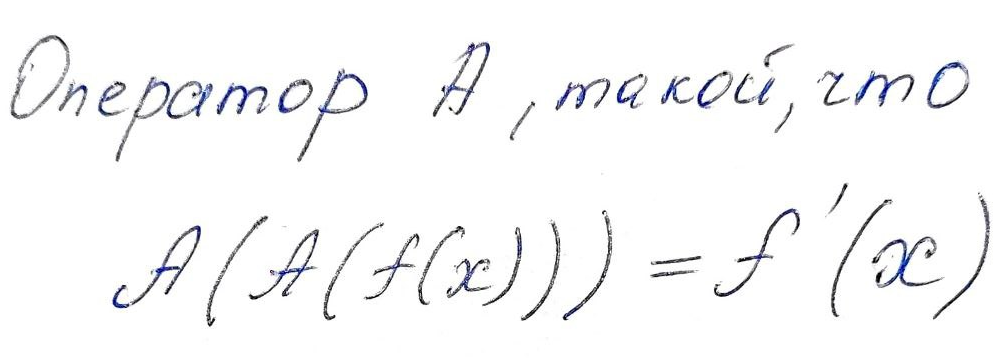 Оператор A, такой, что
A(A(f(x))) = f'(x)